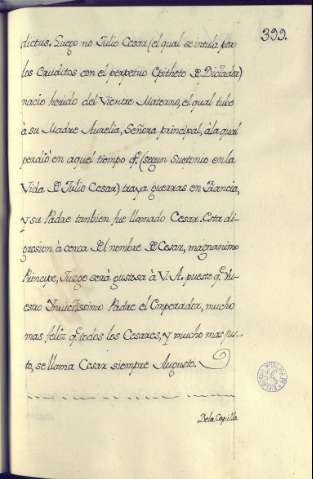 399.
dictus. Luego no Julio Cesar (el qual se intitula por
los Eruditos con el perpetuo Epitheto de Dictador)
nacio herido del Vientre Materno, el qual tubo
à su Madre Aurelia, Señora principal, à la qual
perdiò en aquel tiempo q.e (segun Suetonio en la
Vida de Julio Cesar) traya guerras en Francia,
y su Padre tambien fue llamado Cesar. Esta di-
gresion à cerca del nombre de Cesar, magnanimo
Principe, Juzgo serà gustosa à V. A. puesto q.e Vu-
estro Invictissimo Padre el Emperador, mucho
mas feliz q.e todos los Cesares, y mucho mas jus-
to, se llama Cesar siempre Augusto.
De la Capilla